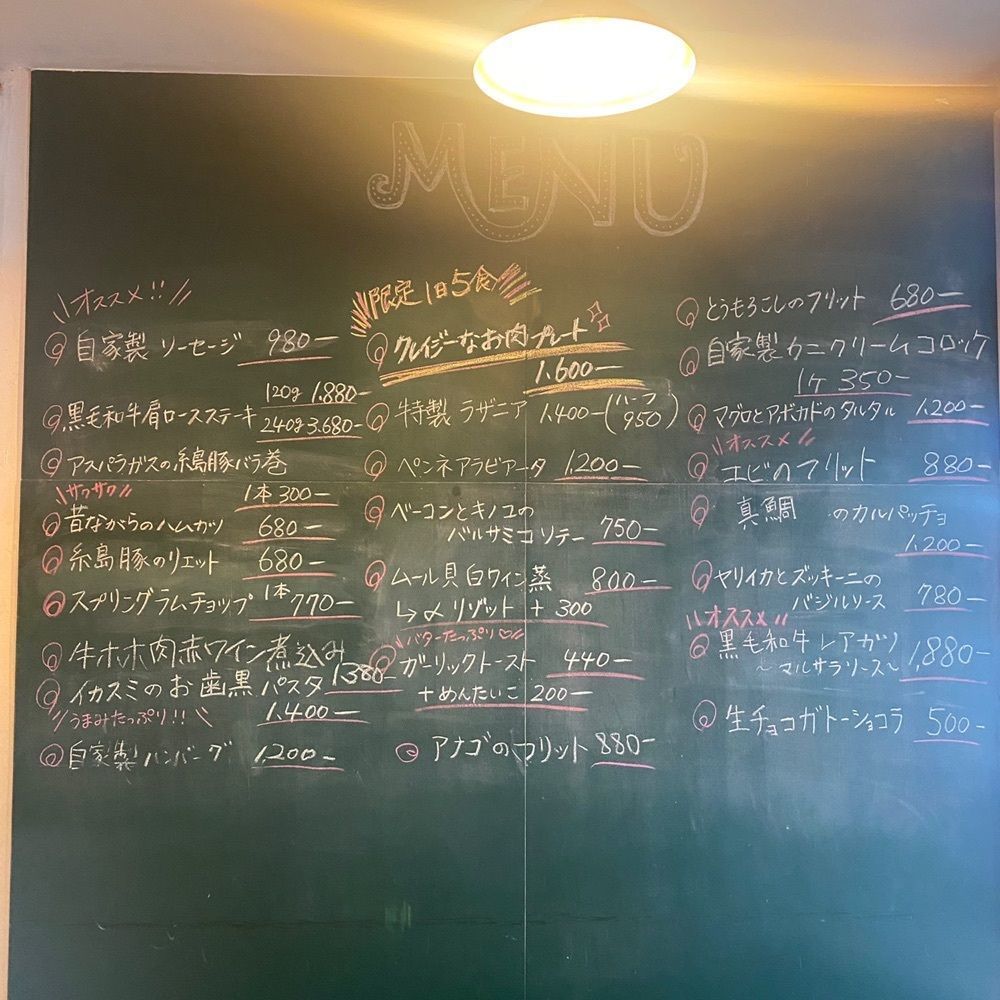 MENU
オススメ!!
自家製 ソーセージ 980-
120g 1.880-
黒毛和牛肩ロースステーキ 240g 3.680-
アスパラガスの糸島豚バラ巻
サクサク 1本 300-
昔ながらのハムカツ 680-
糸島豚のリエット 680-
スプリングラムチョップ 1本 770-
牛ホホ肉赤ワイン煮込み
1380-
イカスミのお歯黒パスタ
うまみたっぷり!! 1.400-
自家製ハンバーグ 1.200-
限定1日5食
クレイジーなお肉プレート
1.600-
特製 ラザニア 1.400-(ハーフ 950)
ペンネアラビアータ 1,200-
ベーコンとキノコの
バルサミコソテー 750-
ムール貝白ワイン蒸 800-
↳〆リゾット + 300
バターたっぷり♡
ガーリックトースト 440-
+めんたいこ 200-
アナゴのフリット 880-
とうもろこしのフリット 680-
自家製カニクリームコロッケ
1ケ 350-
マグロとアボカドのタルタル 1.200-
オススメ
エビのフリット 880-
真鯛 のカルパッチョ
1.200-
ヤリイカとズッキーニの
バジルソース 780-
オススメ
黒毛和牛レアカツ 1,880-
~マルサラソース~
生チョコガトーショコラ 500-